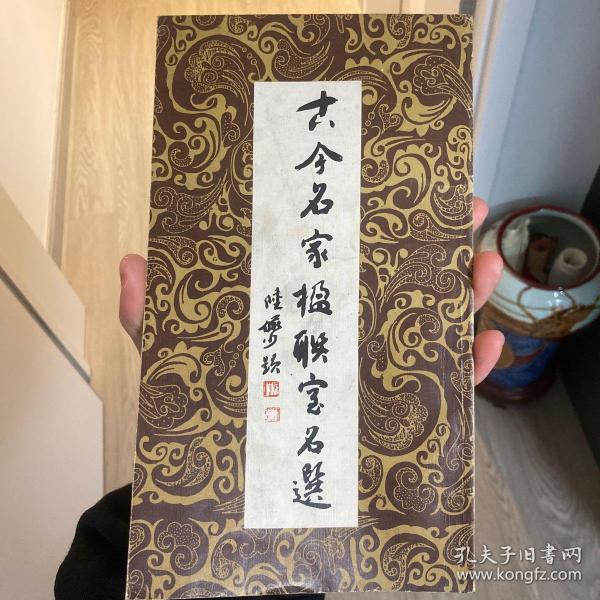 古今名家楹联室名選
陸儼少题
孔夫子旧书网
www.kongfz.com